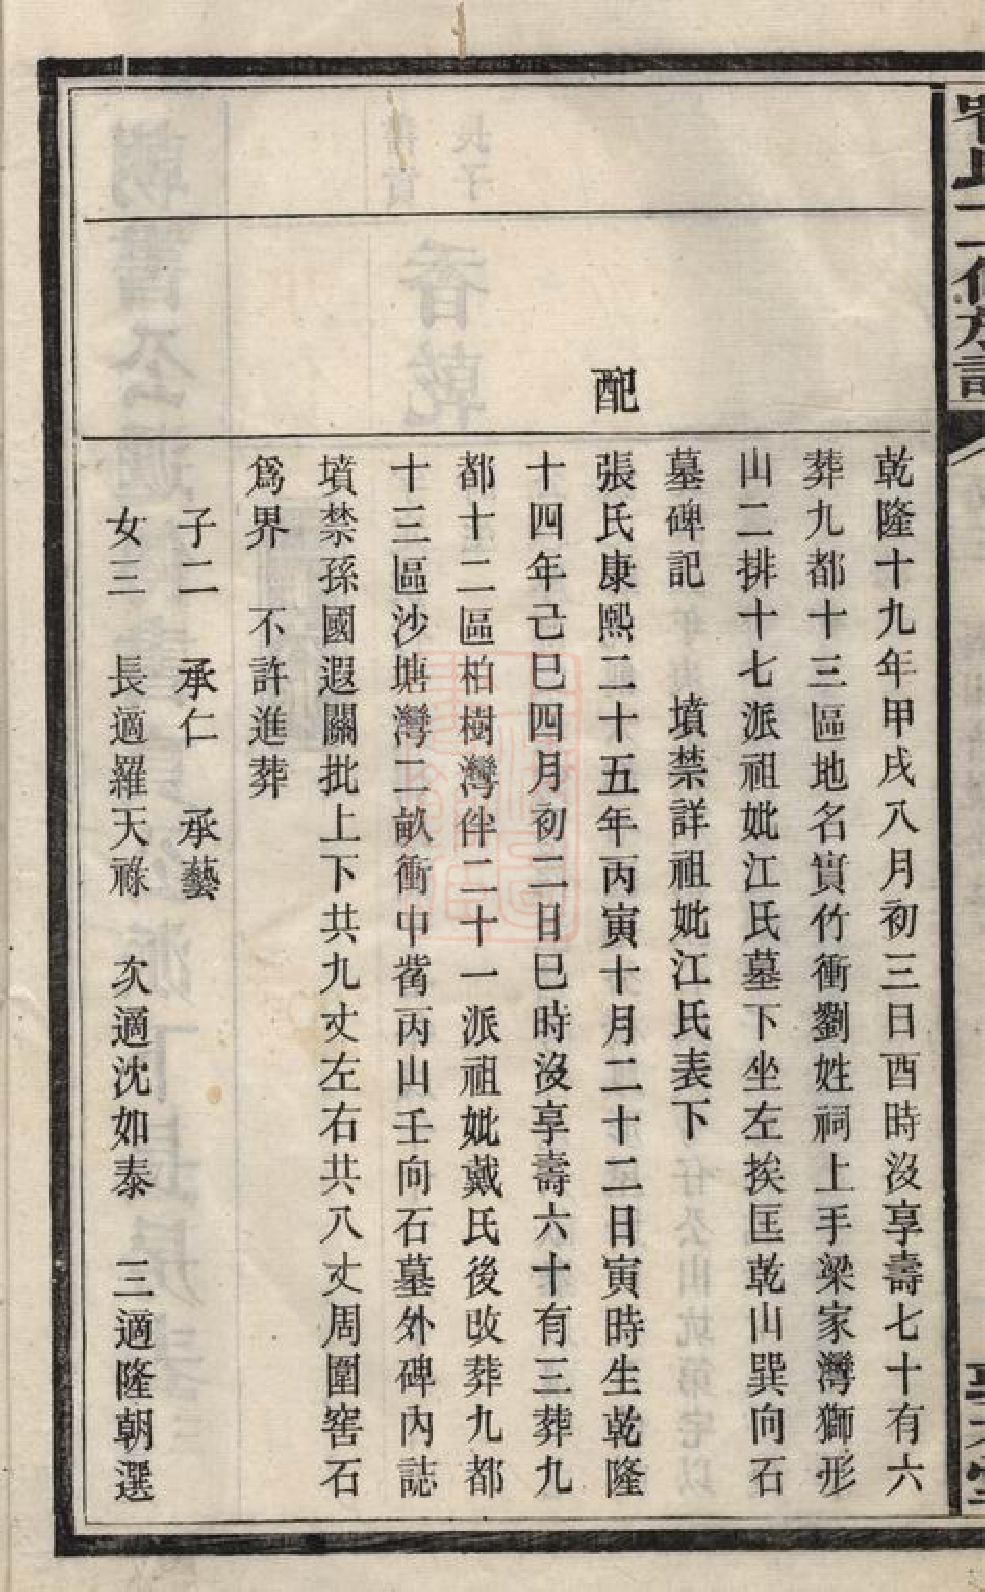 乾隆十九年甲戌八月初三日酉時沒享壽七十有六
葬九都十三區地名實竹衝劉姓祠上手梁家灣獅形
山二排十七派祖妣江氏墓下坐左挨匡乾山巽向石
墓碑記　墳禁詳祖妣江氏表下
配
張氏康熙二十五年丙寅十月二十二日寅時生乾隆
十四年己巳四月初二日巳時沒享壽六十有三葬九
都十二區柏樹灣伴二十一派祖妣戴氏後改葬九都
十三區沙塘灣二畝衝中嘴丙山壬向石墓外碑內誌
墳禁孫國遐關批上下共九丈左右共八丈周圍窖石
爲界　不許進葬
子二　承仁　承藝
女三　長適羅天祿　次適沈如泰　三適隆朝選